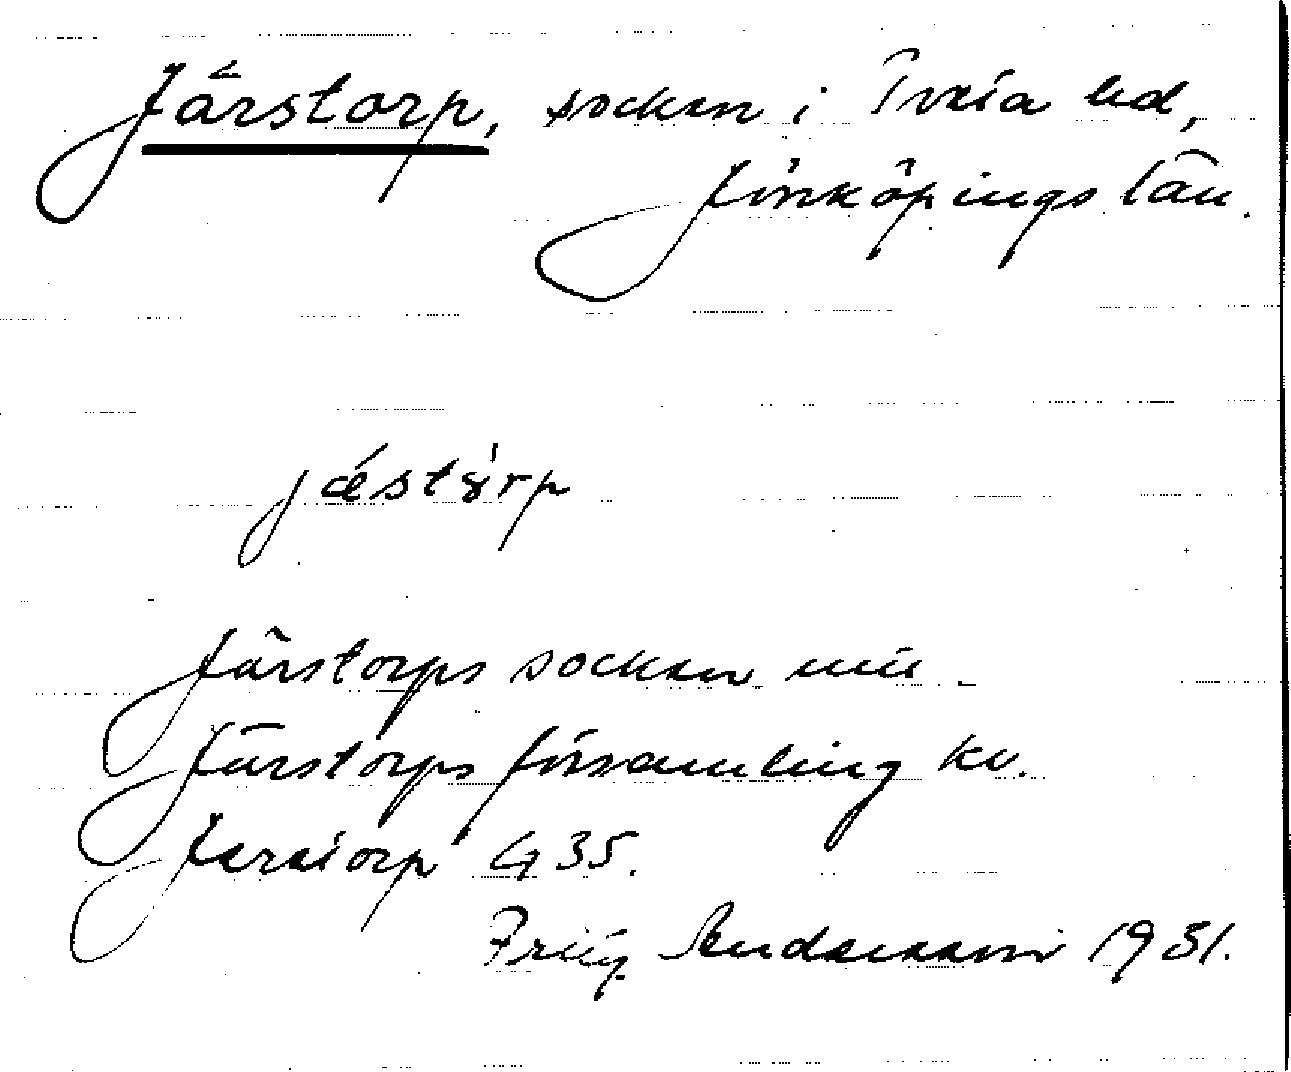 Järstorp, socken i Tveta hd,
Jönköpings län.
jæ´stɤ`rp
Järstorps socken
Järstorps församling kv.
Jerstorp G 35.
Andersson 1931.